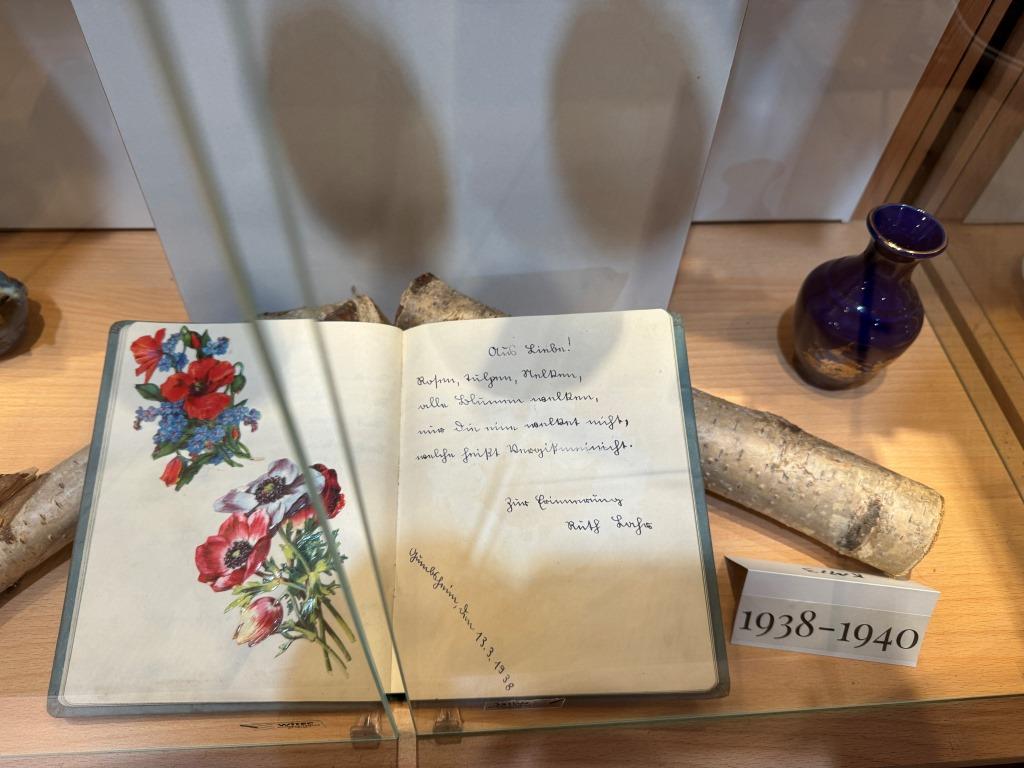 Aus Liebe!
Rosen, Tulpen, Nelken,
alle Blumen welken,
nur die eine welket nicht,
welche heißt Vergißmeinnicht.
Zur Erinnerung
Ruth Lahr
Gumbsheim, den 13.3.1938
1938–1940